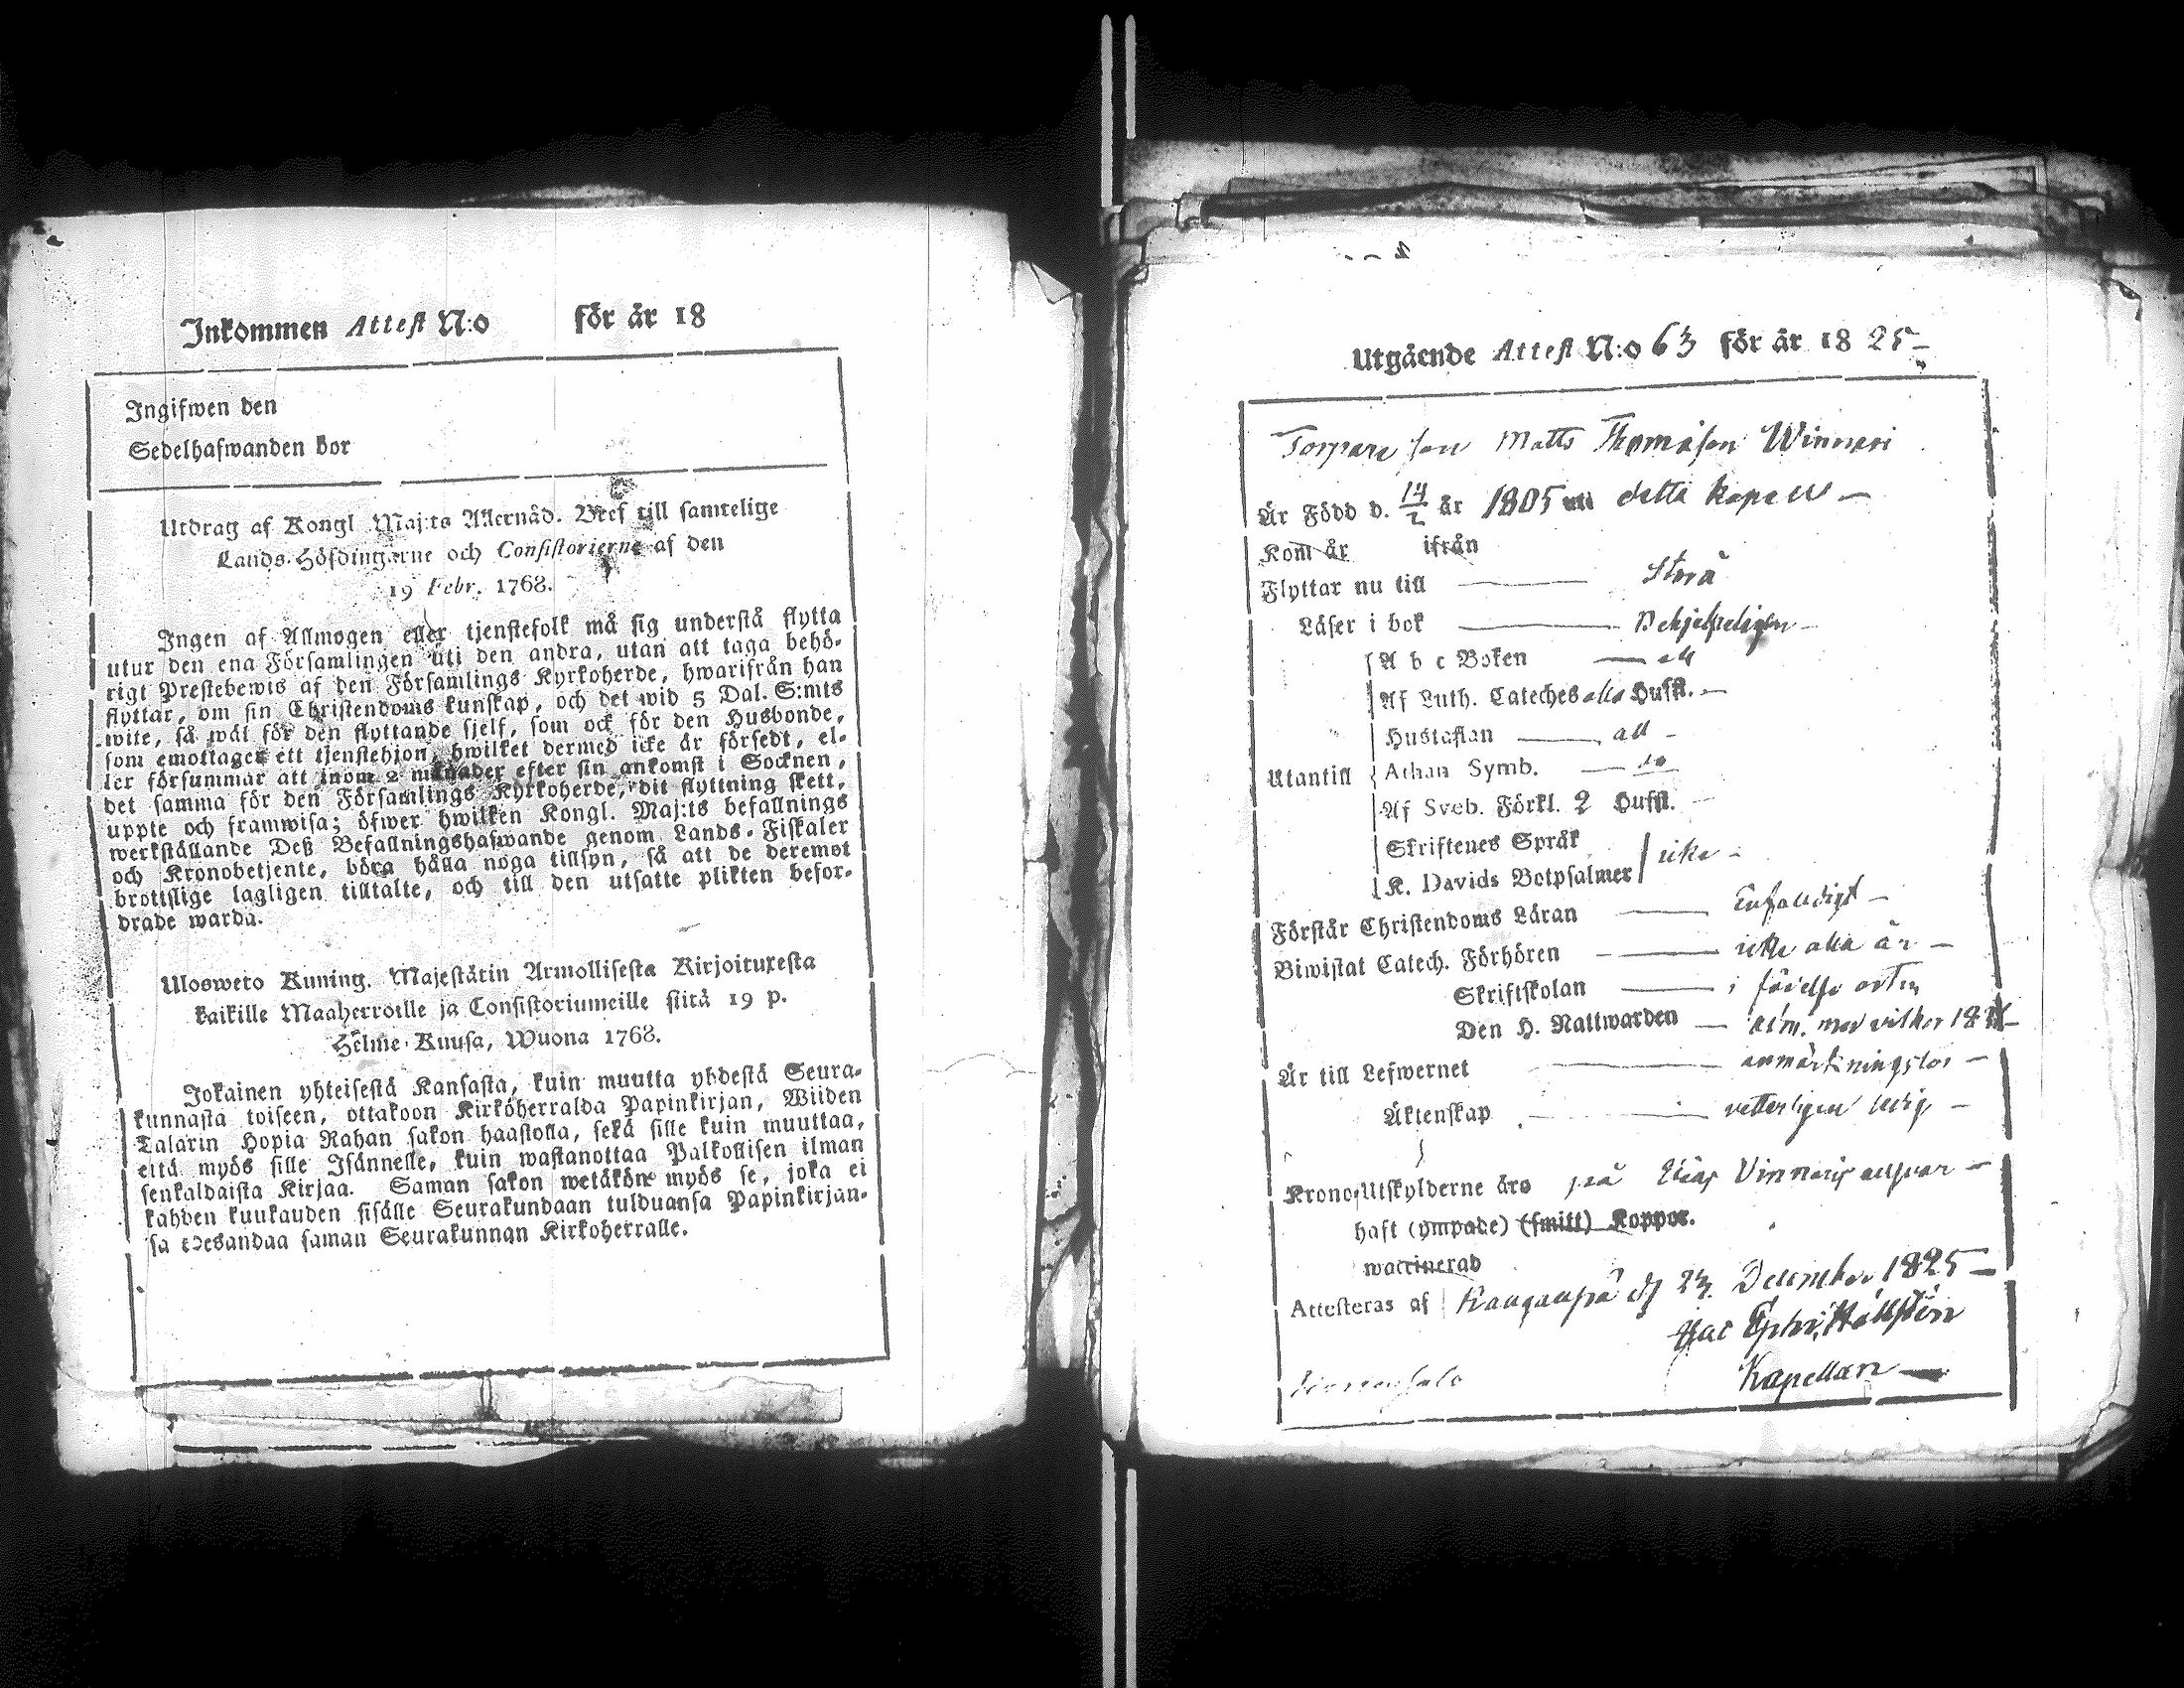 Inkommen Attest N:o för år 18
Ingifwen den
Sedelhafwanden bor
Utdrag af Kongl Maj:ts Allernåd. Bref till samtelige
Lands-Höfdingarne och Consistorierne af den
19 Febr. 1768.
Ingen af Allmogen eller tjenstefolk må sig understå flytta
utur den ena Församlingen uti den andra, utan att taga behö-
rigt Prestebewis af den Församlings Kyrkoherde, hwarifrån han
flyttar, om sin Christendoms kunskap, och det wid 5 Dal. S:mts
wite, så wäl för den flyttande sjelf, som ock för den Husbonde,
som emottager ett tjenstehjon, hwilket dermed icke är försedt, el-
ler försummar att inom 2 månader efter sin ankomst i Socknen,
det samma för den Församlings Kyrkoherde, dit flyttning skett,
uppte och framwisa; öfwer hwilken Kongl. Maj:ts befallnings
werkställande Deß Befallningshafwande genom Lands-Fiskaler
och Kronobetjente, böra hålla noga tillsyn, så att de deremot
brottslige lagligen tilltalte, och till den utsatte plikten befor-
drade warda.
Ulosweto Kuning. Majestätin Armollisesta Kirjoituxesta
kaikille Maaherroille ja Consistoriumeille siitä 19 p.
Helme-Kuusa, Wuona 1768.
Jokainen yhteisestä Kansasta, kuin muutta yhdestä Seura-
kunnasta toiseen, ottakoon Kirkoherralda Papinkirjan, Wiiden
Talarin Hopia Rahan sakon haastolla, sekä sille kuin muuttaa,
että myös sille Isännelle, kuin wastanottaa Palkollisen ilman
senkaldaista Kirjaa. Saman sakon wetäkön myös se, joka ei
kahden kuukauden sisälle Seurakundaan tulduansa Papinkirjan-
sa edesandaa saman Seurakunnan Kirkoherralle.
Utgående Attest N:o 63 för år 1825
Torpare son Matts Thomasson Winnari
Är Född d. 14/2 år 1805 uti detta Kapell
Kom år ifrån
Flyttar nu till Storå
Läser i bok Behjelpeligen
A b c Boken all
Af Luth. Cateches alla Hufst.
Hustaflan all
Utantill Athan Symb. do
Af Sveb. Förkl. 2 Hufst.
Skriftenes Språk
K. Davids Botpsalmer icke
Förstår Christendoms Läran Enfaldigt
Biwistat Catech. Förhören icke alla år
Skriftskolan i födelse orten
Den H. Nattwarden adm. med vitkor
Är till Lefwernet anmärkningslös
Äktenskap vetterligen ledig
Krono-Utskylderne äro på Elias Vinnaris answar
haft (ympade) (smitt) Koppor.
waccinerad
Attesteras af Kauganpä d 23 December 1825
Jac Hällsten
Kapellan